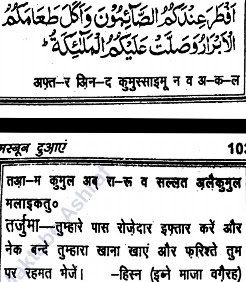 اَفْطَرَ عِنْدَكُمُ الصَّآئِمُوْنَ وَاَكَلَ طَعَامَكُمُ
الْاَبْرَارُ وَصَلَّتْ عَلَيْكُمُ الْمَلٰٓئِكَةُ
अफ़्त-र ज़िन-द कुमुस्साइमू न व अ-क-ल
मस्नून दुआएं 103
तआ़-म कुमुल अब् रा-रू व सल्लत अ़लैकुमुल
मलाइकतु०
तर्जुमा—तुम्हारे पास रोज़ेदार इफ़्तार करें और
नेक बन्दे तुम्हारा खाना खाएं और फ़रिश्ते तुम
पर रहमत भेजें। -हिस्न (इब्ने माजा वग़ैरह)